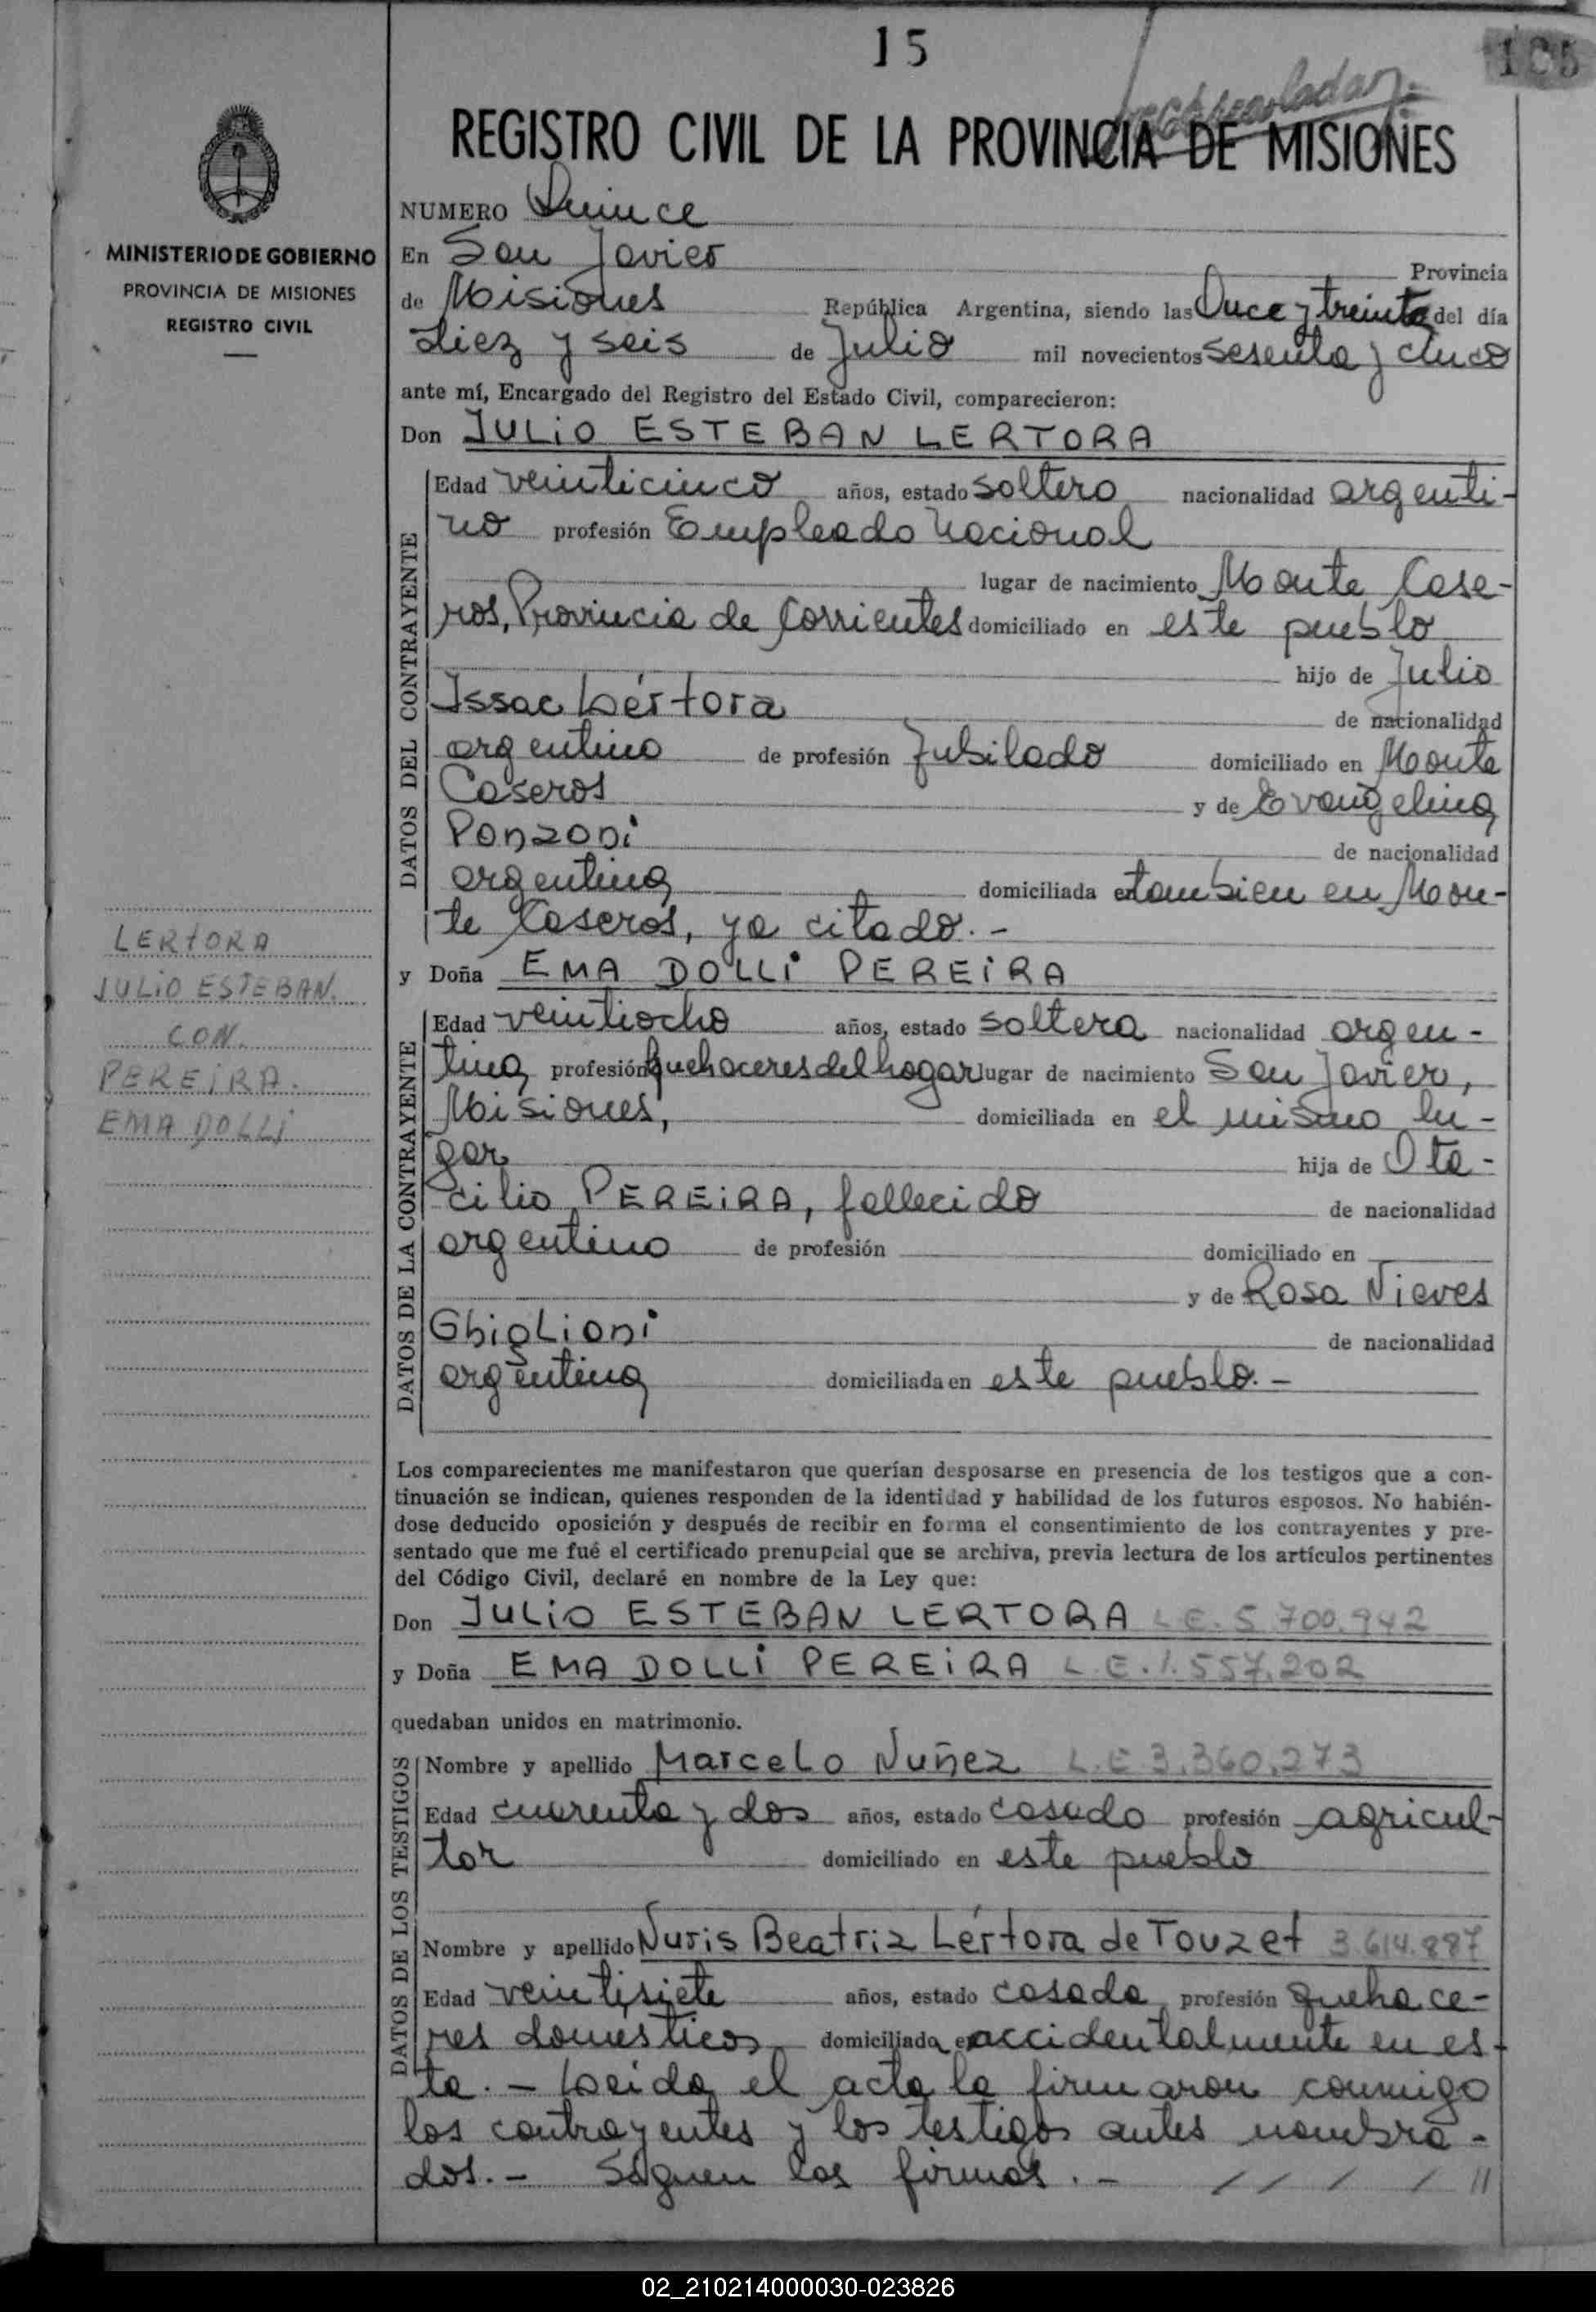 15
105
REGISTRO CIVIL DE LA PROVINCIA DE MISIONES
MINISTERIO DE GOBIERNO
PROVINCIA DE MISIONES
REGISTRO CIVIL
NUMERO Quince
En San Javier Provincia
de Misiones República Argentina, siendo las Once y treinta del día
diez y seis de Julio mil novecientos sesenta y cinco
ante mí, Encargado del Registro del Estado Civil, comparecieron:
Don JULiO ESTEBAN LERTORA
DATOS DEL CONTRAYENTE
Edad veinticinco años, estado soltero nacionalidad argenti-
no profesión Empleado Nacional
lugar de nacimiento Monte Case-
ros, Provincia de Corrientes domiciliado en este pueblo
hijo de Julio
Issac Lértora de nacionalidad
argentino de profesión Jubilado domiciliado en Monte
Caseros y de Evangelina
Ponzoni de nacionalidad
argentina domiciliada en tambien en Mon-
te Caseros, ya citado. -
y Doña EMA DOLLi PEREiRA
DATOS DE LA CONTRAYENTE
Edad veintiocho años, estado soltera nacionalidad argen-
tina profesión quehaceres del hogar lugar de nacimiento San Javier,
Misiones, domiciliada en el mismo lu-
gar hija de Ota-
cilio PEREiRA, fallecido de nacionalidad
argentino de profesión domiciliado en
y de Rosa Nieves
Ghiglioni de nacionalidad
argentina domiciliada en este pueblo. -
LERTORA
JULiO ESTEBAN.
CON.
PEREiRA.
EMA DOLLi
Los comparecientes me manifestaron que querían desposarse en presencia de los testigos que a con-
tinuación se indican, quienes responden de la identidad y habilidad de los futuros esposos. No habién-
dose deducido oposición y después de recibir en forma el consentimiento de los contrayentes y pre-
sentado que me fué el certificado prenupcial que se archiva, previa lectura de los artículos pertinentes
del Código Civil, declaré en nombre de la Ley que:
Don JULiO ESTEBAN LERTORA L.E. 5.700.942
y Doña EMA DOLLi PEREiRA L.E. 1.557.202
quedaban unidos en matrimonio.
DATOS DE LOS TESTIGOS
Nombre y apellido Marcelo Nuñez L.E 3.360.273
Edad cuarenta y dos años, estado casado profesión agricul-
tor domiciliado en este pueblo
Nombre y apellido Nuris Beatriz Lértora de Touzet 3.614.887
Edad veintisiete años, estado casada profesión quehace-
res domésticos domiciliada en accidentalmente en es-
ta. - Leida el acta la firmaron conmigo
los contrayentes y los testigos antes nombra-
dos. - Siguen las firmas. - / / / / //
02_210214000030-023826